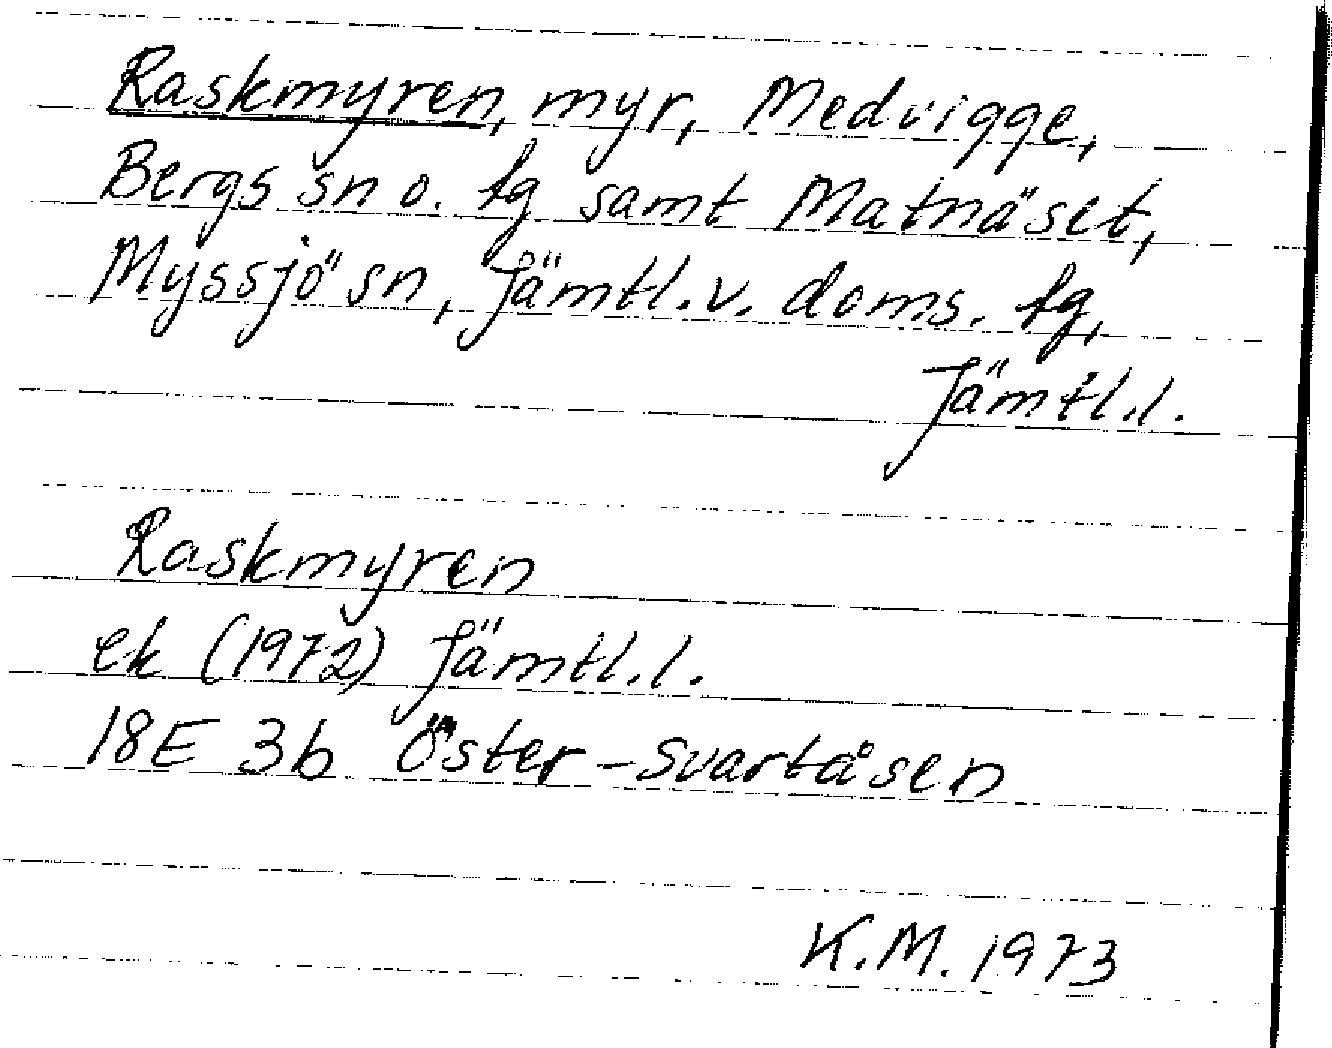 Raskmyren, myr, Medvigge,
Bergs sn o. tg samt Matnäset,
Myssjö sn, Jämtl. v. doms. tg,
Jämtl. l.
Raskmyren
ek (1972) Jämtl. l.
18E 3b Öster-Svartåsen
K.M. 1973